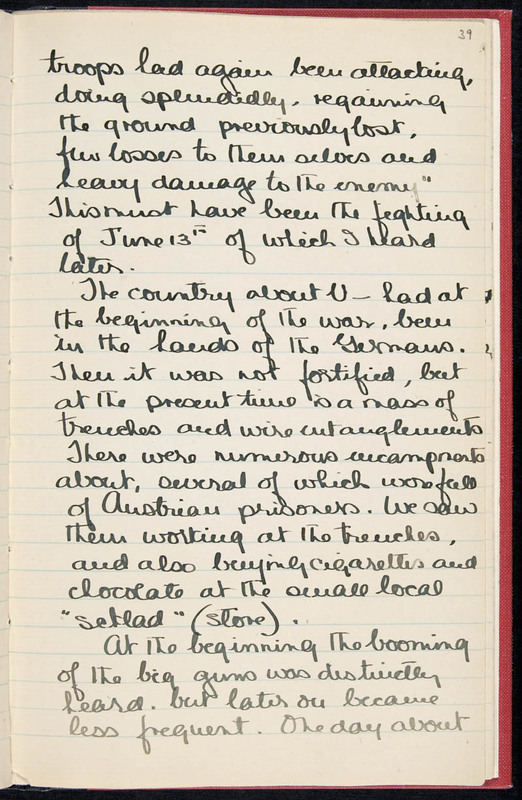 39
troops had again been attacking,
doing splendidly, regainning
the ground previously lost,
few losses to them selves and
heavy damage to the enemy"
This must have been the fighting
of June 13th of which I heard
later.
The country about U— had at
the beginning of the war, been
in the hands of the Germans.
Then it was not fortified, but
at the present time is a mass of
trenches and wire entanglements
There were numerous encampments
about, several of which were full
of Austrian prisoners. We saw
them working at the trenches,
and also buying cigarettes and
chocolate at the small local
"setlad" (store).
At the beginning the booming
of the big guns was distinctly
heard. but later on became
less frequent. One day about